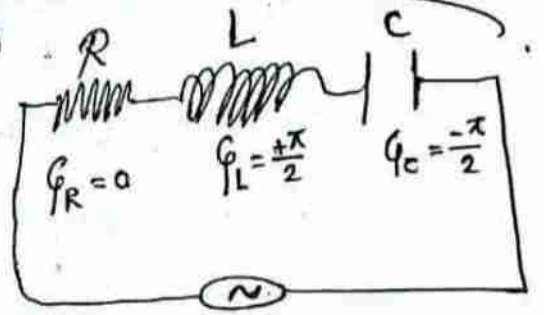 R L C
φ_R = 0 φ_L = +π/2 φ_C = -π/2
~